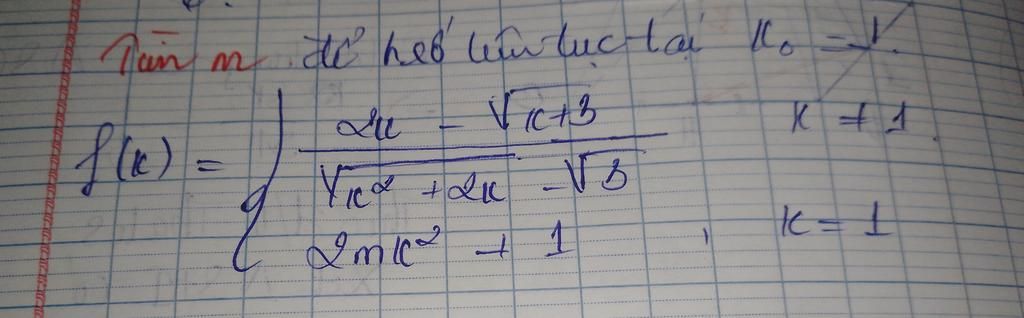 Tìm m để hsố liên tục tại x₀ = 1.
f(x) = { (2x - √(x+3)) / (√(x² + 2x) - √3) x ≠ 1
2mx² + 1 , x = 1